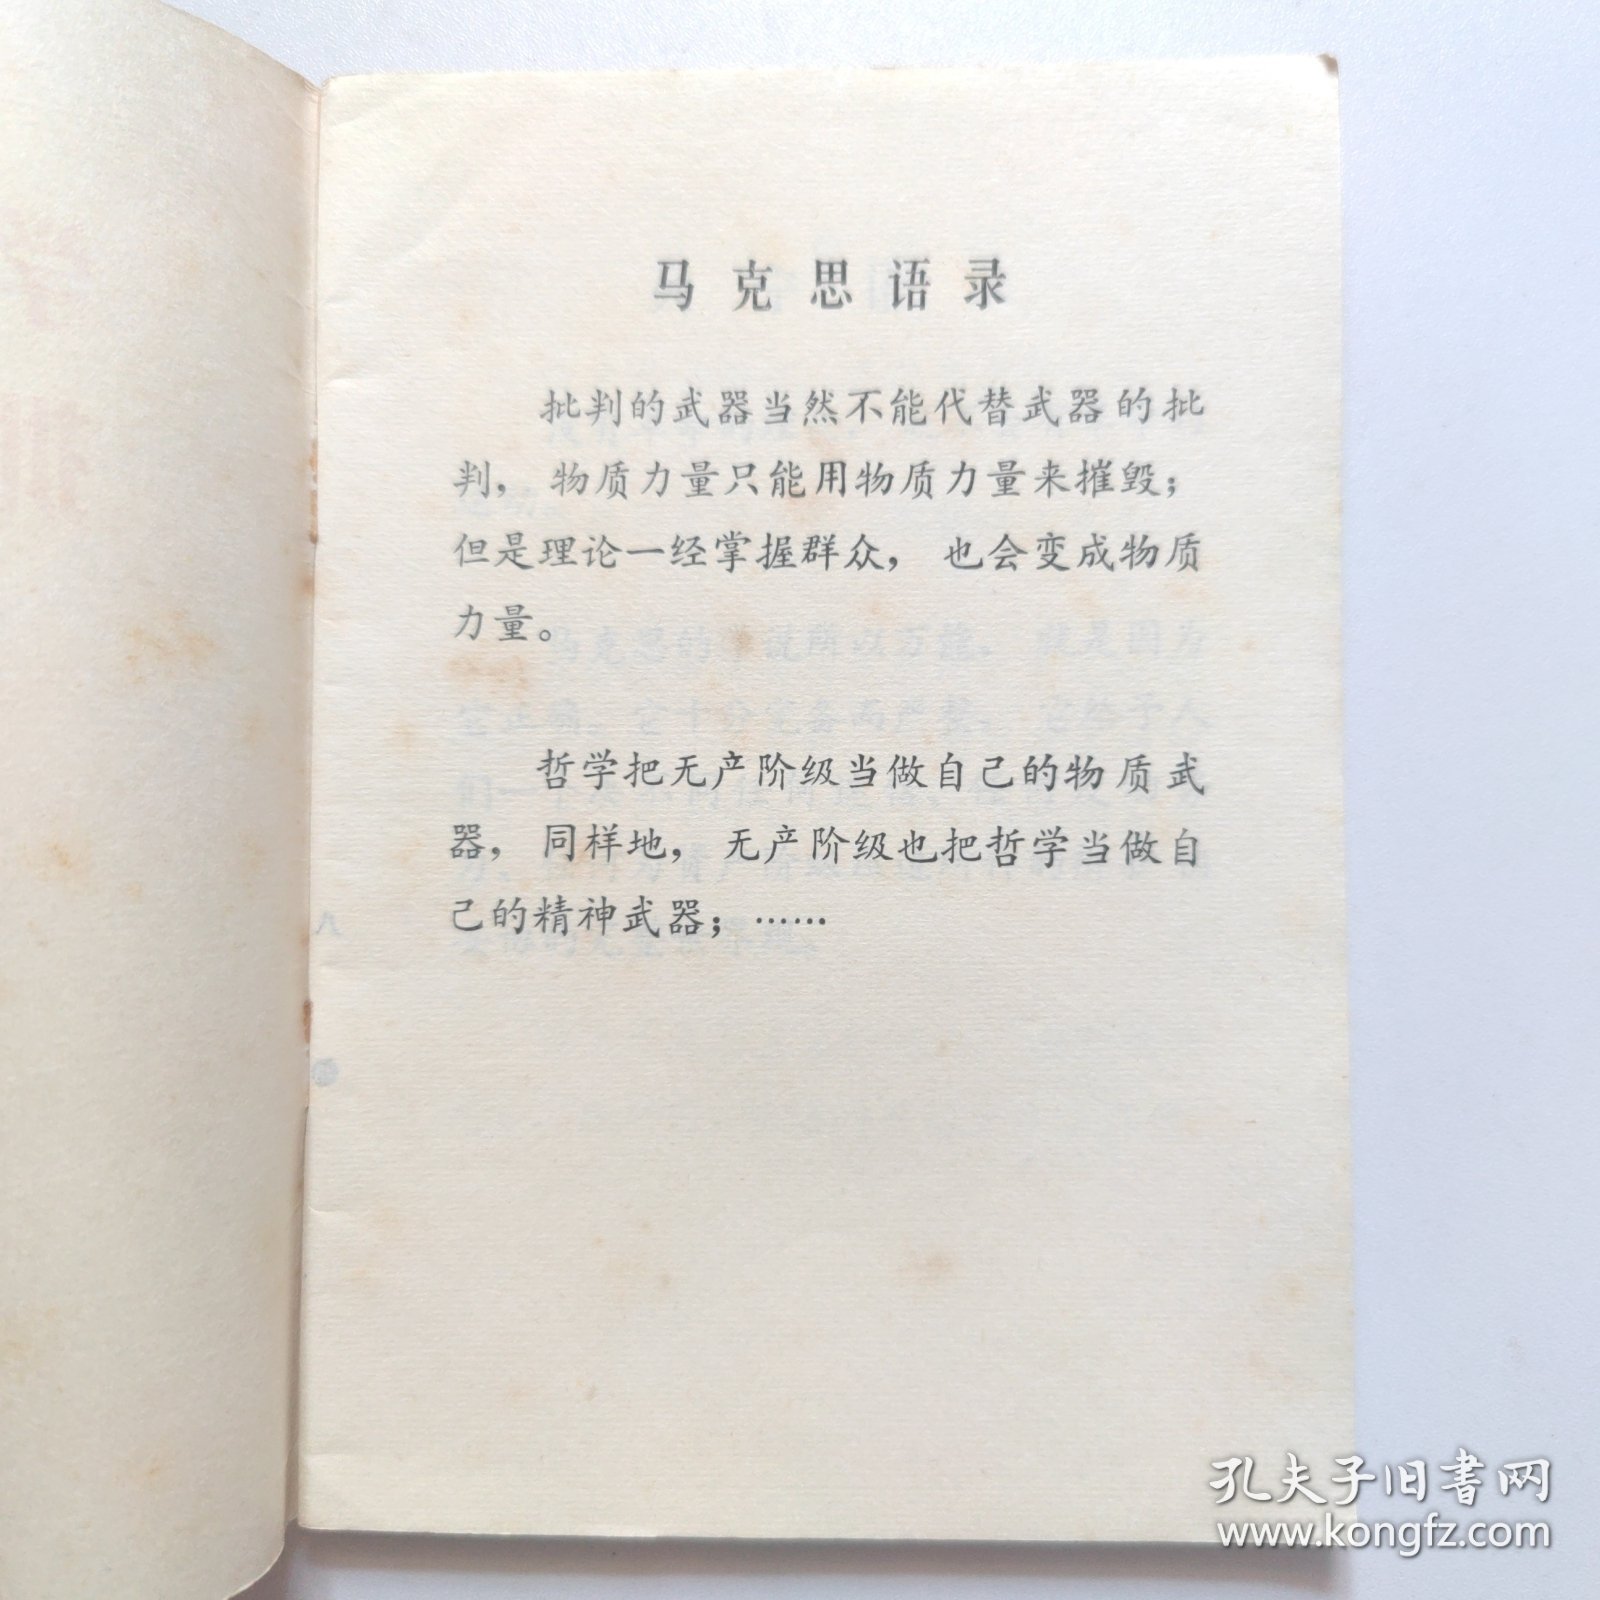 马克思语录
批判的武器当然不能代替武器的批
判，物质力量只能用物质力量来摧毁；
但是理论一经掌握群众，也会变成物质
力量。
哲学把无产阶级当做自己的物质武
器，同样地，无产阶级也把哲学当做自
己的精神武器；……
孔夫子旧书网
www.kongfz.com